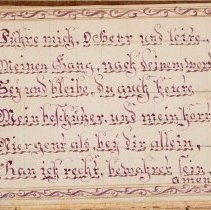 Führe mich, O Herr und leite,
Meinen Gang, nach deinem wort
Sey und bleibe, du auch heute
Mein beschützer, und mein hort
Nirgens als, bey dir allein,
Kan ich recht, bewahret sein
amen